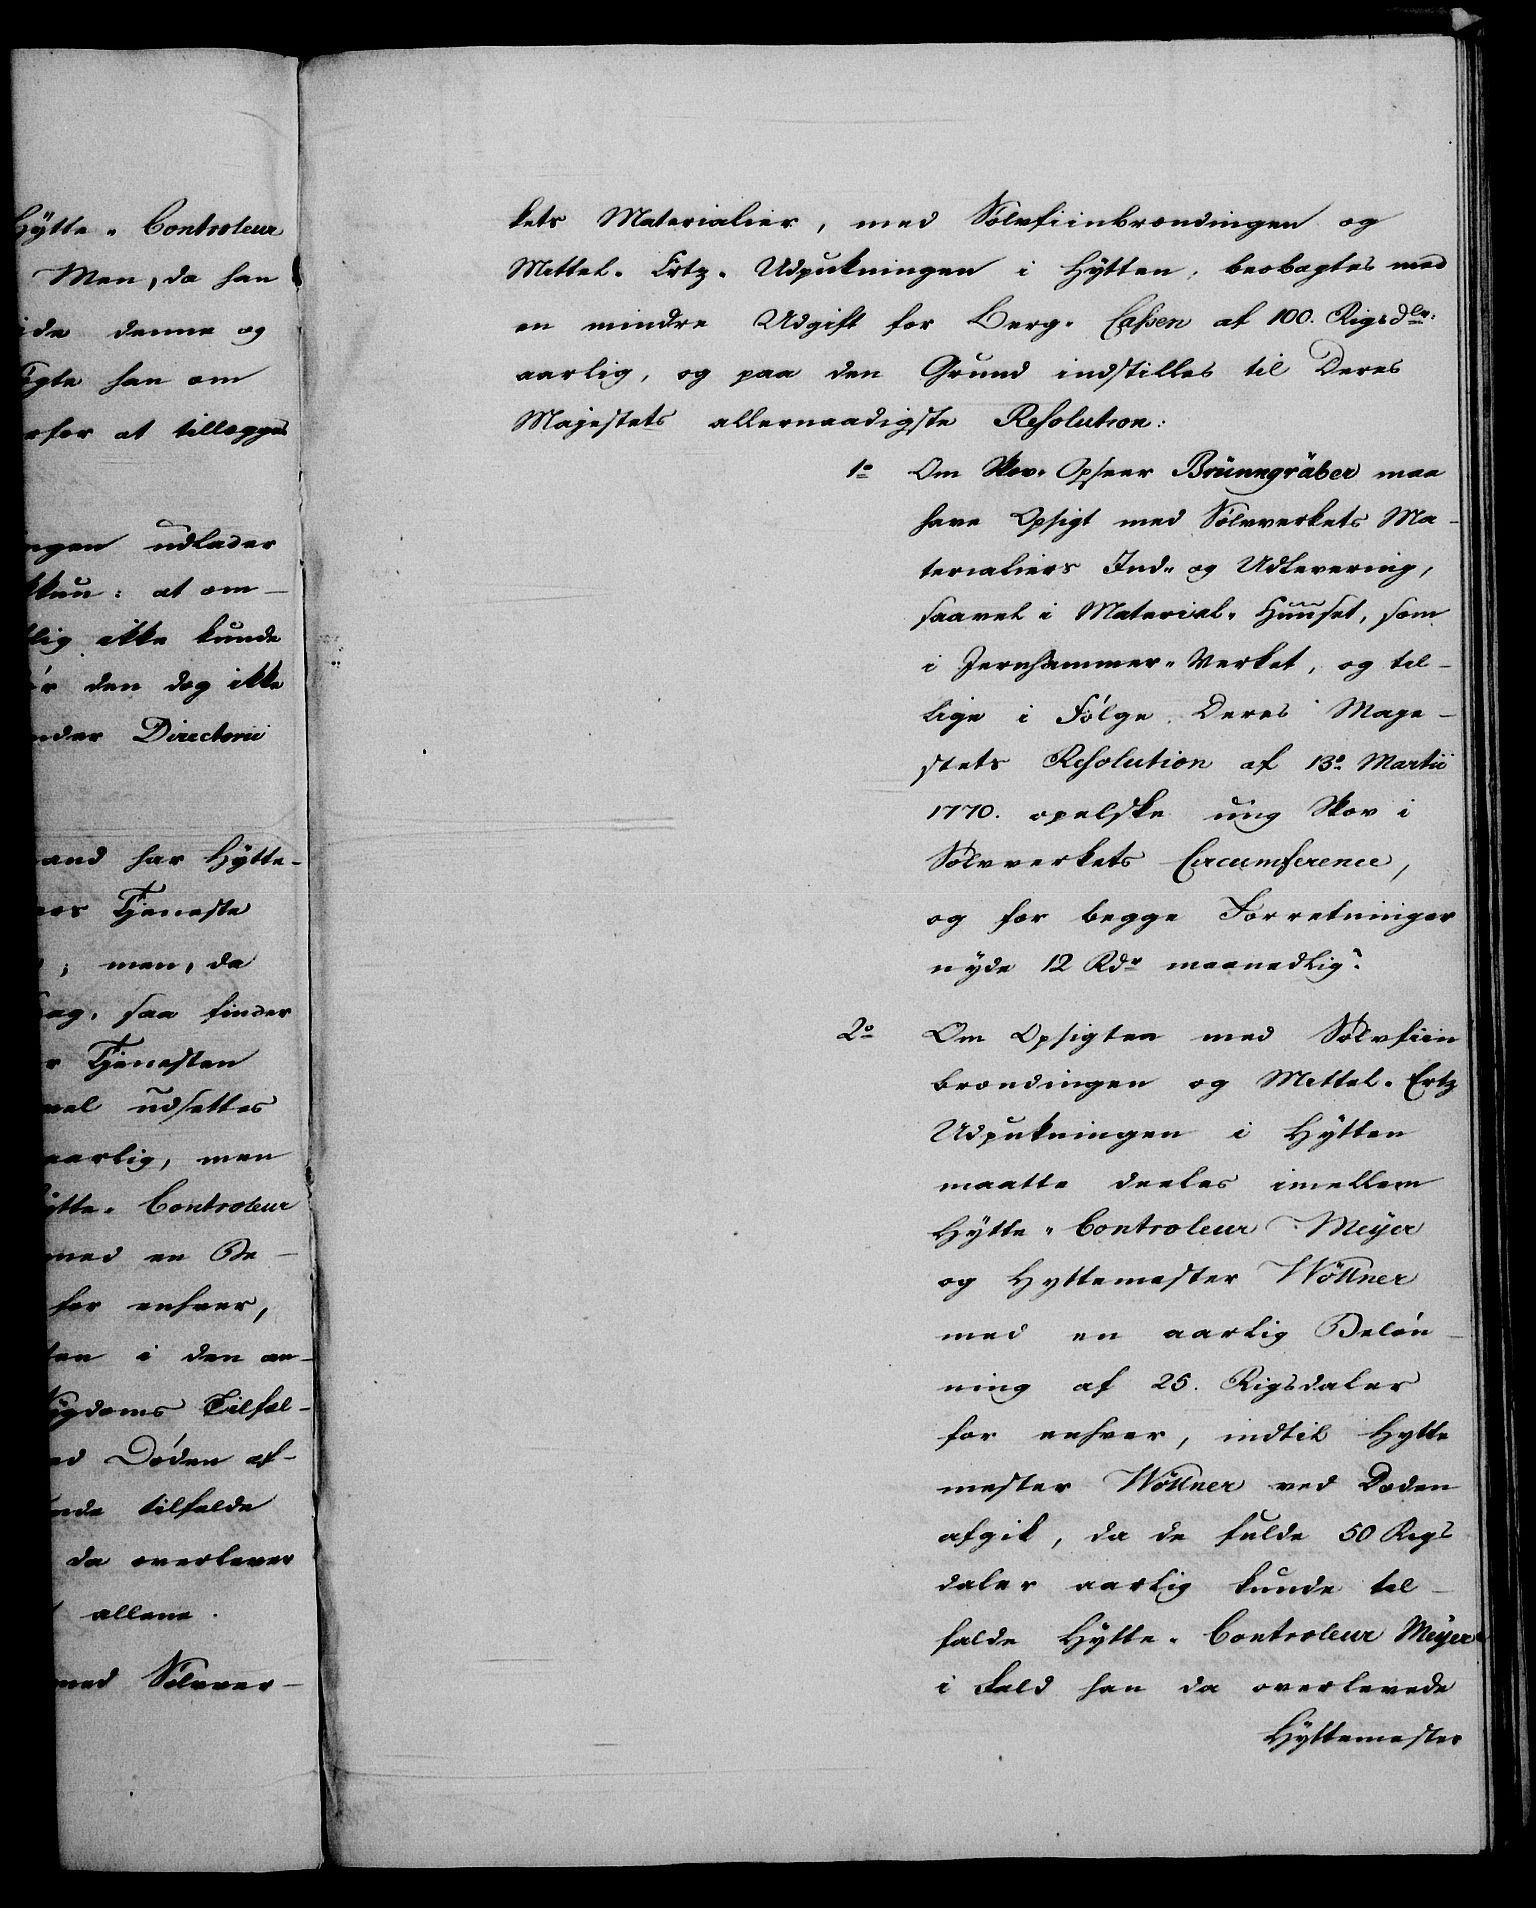 Hÿtte„ Controleur
Men, da han
denne og
han om
at tillægges
udlader
at om-
ikke kunde
den dog ikke
Directorii
har Hÿtte-
Tjeneste
; men, da
saa finder
Tjenesten
udsettes
aarlig, men
Controleur
med en Be-
for enhver,
i den an-
Tilfæl-
Døden af-
tilfalde
da overlever
allene.
med Sølvver-
kets Materialier, med Sølvfiinbrændingen og
Mettal„ Ertz„ Udpukningen i Hÿtten, beobagtes med
en mindre Udgift for Berg„ Cassen af 100. Rigsdlr:
aarlig, og paa den Grund indstilles til Deres
Majestets allernaadigste Resolution:
1o Om Skov„ Opseer Brünngräber maa
have Opsigt med Sølvverkets Ma-
terialiers Ind„ og Udlevering,
saavel i Material„ Huuset, som
i Jernhammer„ Verket, og til-
lige i Følge Deres Maje-
stets Resolution af 13o Martii
1770. opelske ung Skov i
Sølvverkets Circumference,
og for begge Forretninger
nÿde 12 Rdr maanedlig?
2o Om Opsigten med Sølvfiin
brændingen og Mettal„ Ertz
Udpukningen i Hÿtten
maatte deeles imellem
Hÿtte„ Controleur Meÿer
og Hyttemester Wöllner
med en aarlig Beløn-
ning af 25. Rigsdaler
for enhver, indtil Hytte
mester Wöllner ved Døden
afgik, da de fulde 50 Rigs
daler aarlig kunde til-
falde Hÿtte„ Controleur Meÿer
i Fald han da overlevede
Hÿttemester